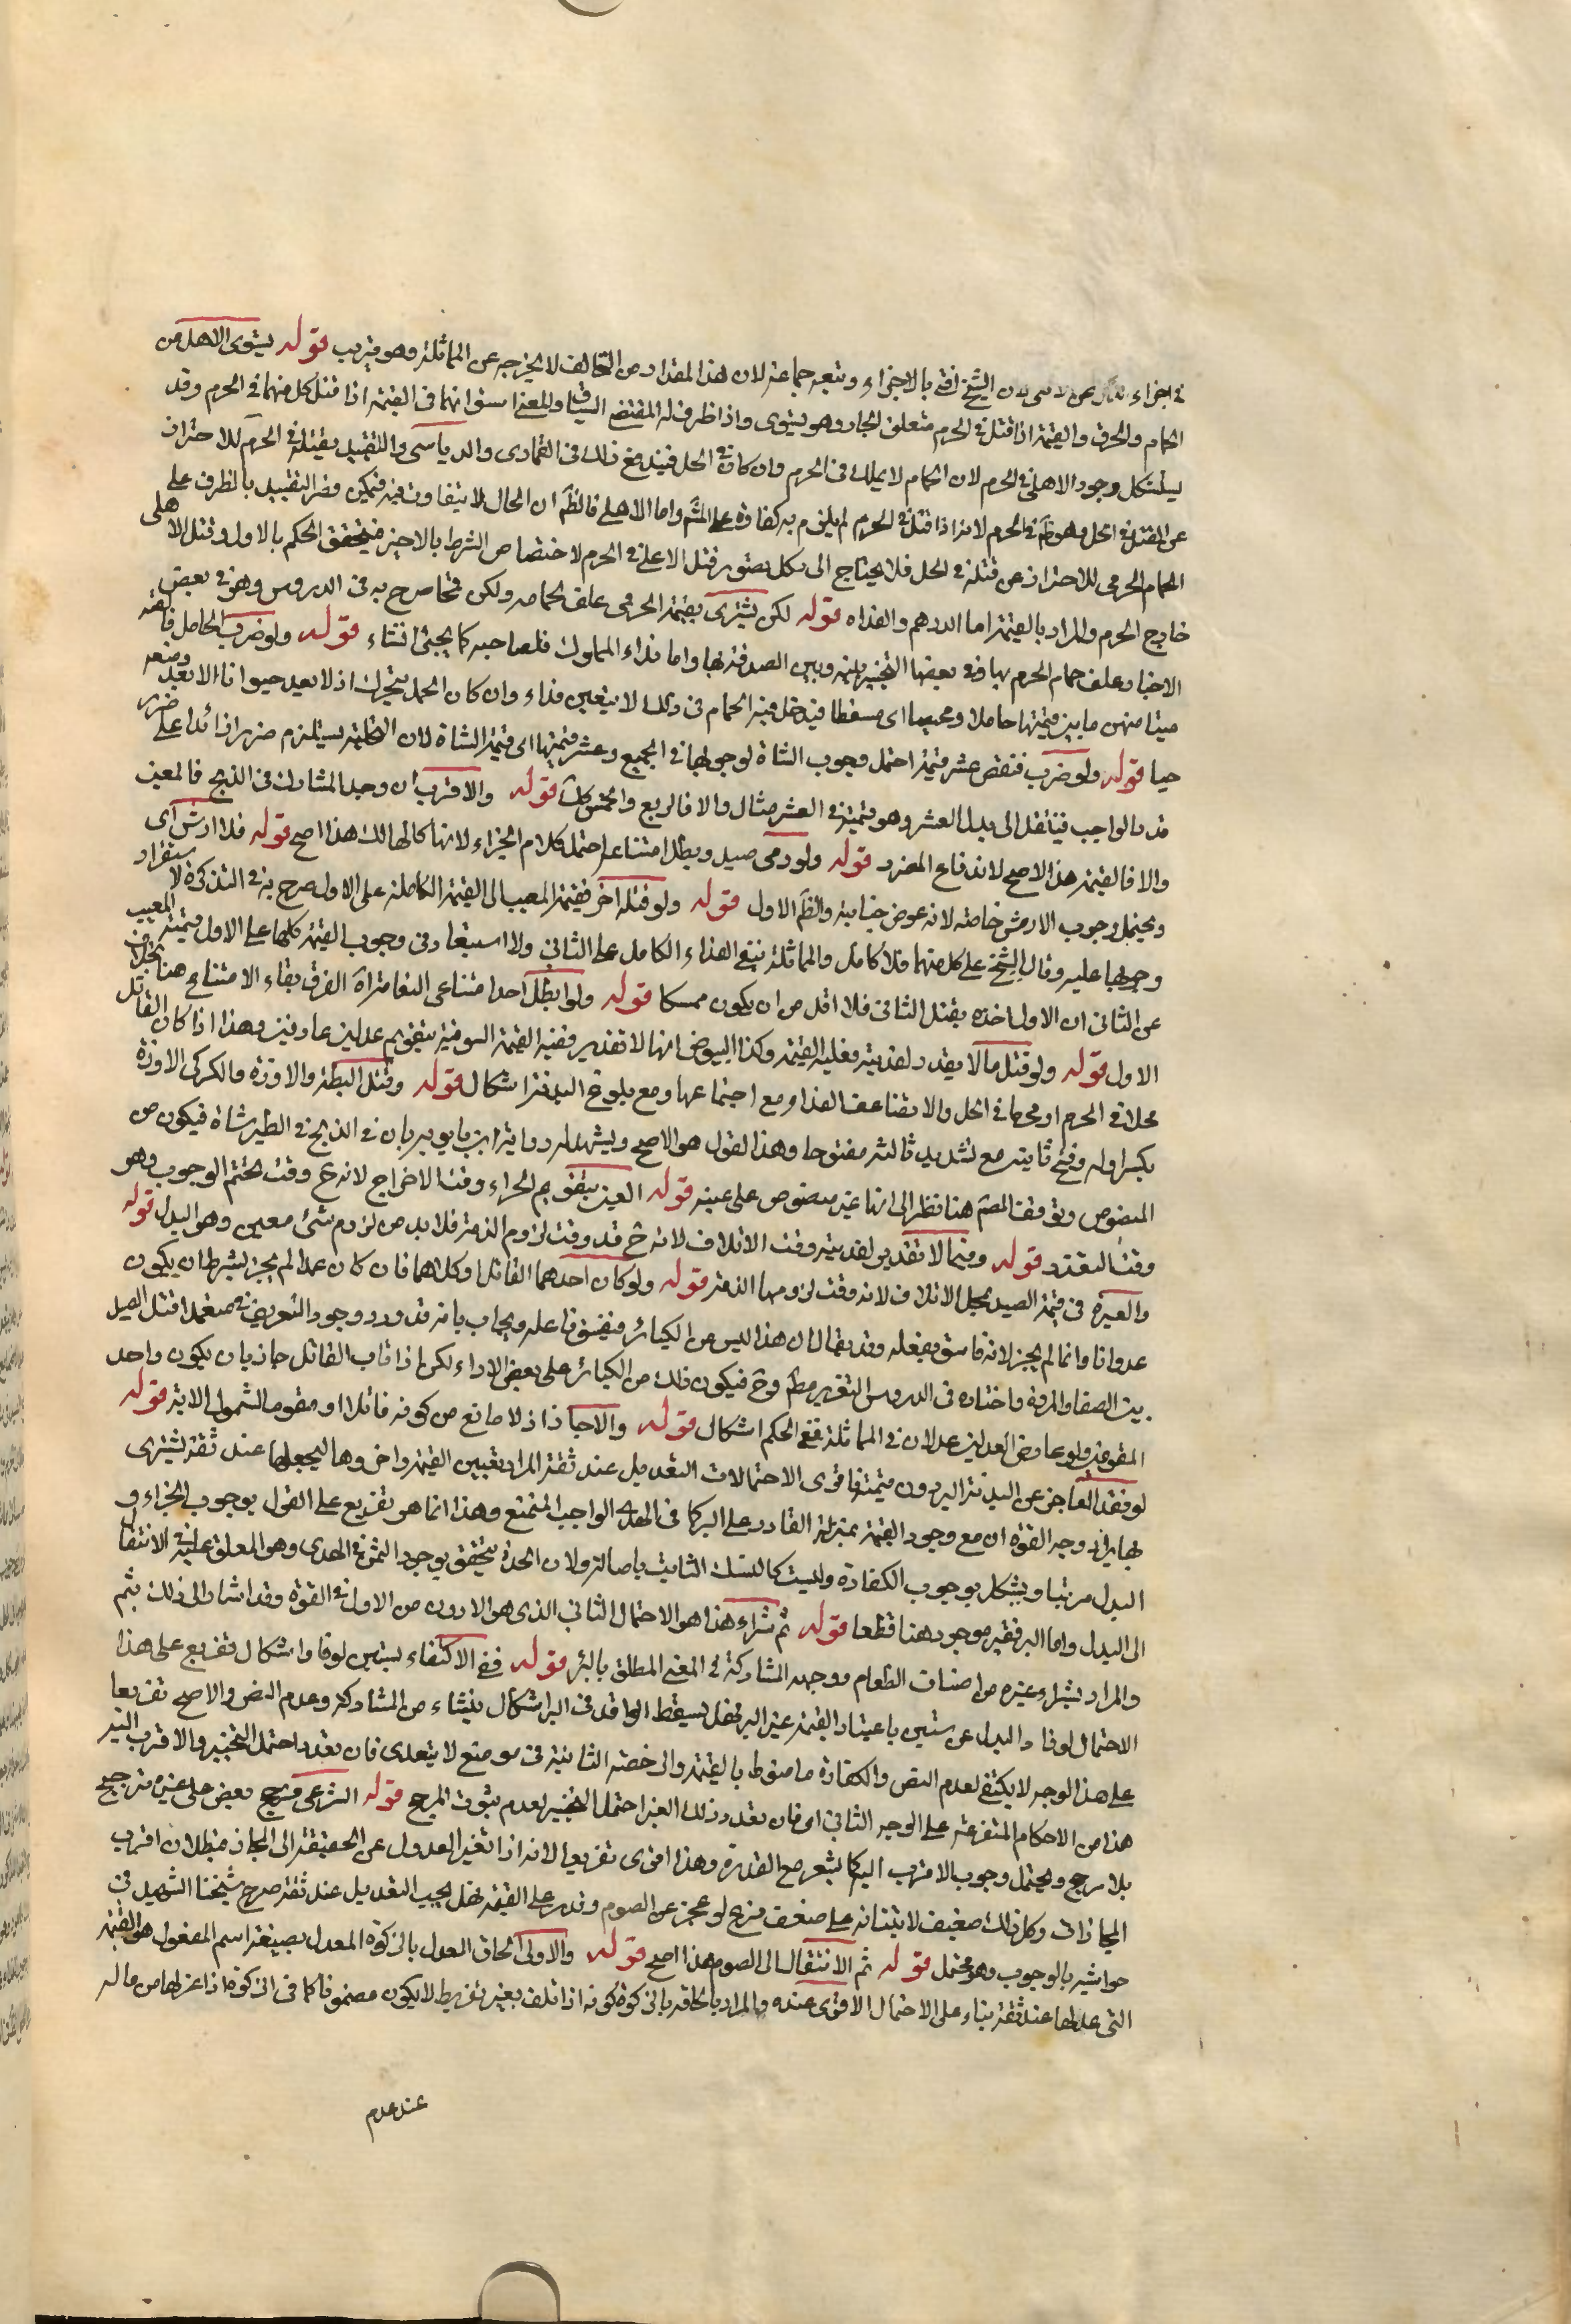 في اجزاء الذكر عن الانثى لان الشيخ افتى بالاجزاء وتبعه جماعة لان هذا المقدار من التخالف لا يخرجه عن المماثلة وهو قريب قوله يستوى الاهلى من
الحمام والحرمى والقيمة اذا قتل فى الحرم متعلق الجار وهو يستوى واذا ظرف له المقتضى السياق والمعنى استوائهما فى القيمة اذا قتل كل منهما فى الحرم وقد
يستشكل وجود الاهلى فى الحرم لان الحمام لا يملك فى الحرم وان كان فى الحل فيندفع ذلك فى القمارى والدباسى والتقييد بقتله فى الحرم للاحتراز
عن القتل فى الحل وهو ظ فى الحرم لانه اذا قتل فى الحرم لم يلزم به كفارة على المش واما الاهلى فالظ ان الحال لا يتفاوت فيه فيمكن قصر التقييد بالظرف على
الحمام الحرمى للاحتراز عن قتله فى الحل فلا يحتاج الى تكلف تصوير قتل الاهلى فى الحرم لاختصاص الشرط بالاخير فيتحقق الحكم بالاول وقتل الاهلى
خارج الحرم والمراد بالقيمة اما الدرهم والفداء قوله لكن يشترى بقيمة الحرمى علف لحمامه ولكن قمحا صرح به فى الدروس وهو فى بعض
الاخبار علف حمام الحرم بها وفى بعضها التخيير بينه وبين الصدقة بها واما فداء المملوك فلصاحبه كما يجئ انشاء قوله ولو ضرب الحامل فالقته
ميتا ضمن ما بين قيمتها حاملا ومجهضا اى مسقطا فيدخل فيه الحمام فى ذلك لا يتعين فداء وان كان الحمل يتحرك اذ لا يعد حيوانا الا بعد وضعه
حيا قوله ولو ضرب فنقص عشر قيمته احتمل وجوب الشاة لوجوبها فى الجميع وعشر قيمتها اى قيمة الشاة لان الكلية يستلزم ضررا زائدا على ضرر
قدر الواجب فينتقل الى بدل العشر وهو قيمته فى العشر مثال والا فالربع والخمس كك قوله والاقرب ان وجد المشارك فى الذبح فالمعين
والا فالقيمة هذا الاصح لاندفاع الضرر قوله ولو رمى صيد وبطل امتناعه احتمل كلام الجزاء لانها كالهالك هذا اصح قوله فلا ارش اى
ويحتمل وجوب الارش خاصة لانه عوض جناية والظ الاول قوله ولو قتله اخر فقيمة المعيب الى القيمة الكاملة على الاول صرح به فى التذكرة لاستقرار
وجوبها عليه وقال الشيخ على كل منهما فلا كامل والمماثلة ينفى الفداء الكامل على الثانى ولا استبعاد فى وجوب القيمة كلها على الاول وقيمته المعيب
عن الثانى ان الاول اخذه بقتل الثانى فلا اقل من ان يكون ممسكا قوله ولو ابطل احد امتناعى النعامة اة الفرق بقاء الامتناع هنا بخلاف
الاول قوله ولو قتل ما لا يقدر لفديته فعليه القيمة وكذا البيوض انها لا تقدير ففيه القيمة السوقية بتقويم عدلين عارفين وهذا اذا كان القاتل
محلا فى الحرم او محرما فى الحل والا يضاعف الفداء ومع اجتماعهما ومع بلوغ البدنة اشكال قوله وقتل البطة والاوزة والكركى الاوزة
بكسر اوله وفتح ثانيه مع تشديد ثالثه مفتوحا وهذا القول هو الاصح ويشهد له رواية ابن بابويه بان فى الذبح فى الطير شاة فيكون من
المنصوص وتوقف المص هنا نظرا الى انها غير منصوص على عينه قوله العين بتقويم الجزاء وقت الاخراج لانه ح وقت تحتم الوجوب وهو
وقت التعذر قوله وفيما لا تقدير لفديته وقت الاتلاف لانه ح قد وقت لزوم الذمة فلا بد من لزوم شئ معين وهو البدل قوله
والعبرة فى قيمة الصيد بمحل الاتلاف لانه وقت لزومها الذمة قوله ولو كان احدهما القاتل او كلاهما فان كان عمدا لم يجز بشرط ان يكون
عدوانا وانما لم يجز لانه فاسق بفعله وقد يقال ان هذا ليس من الكبائر فيفسق فاعله ويجاب بانه قد ورد وجود التعزير فى متعمد اقتل الصيد
بين الصفا والمروة واختاره فى الدروس التعزير مط وح فيكون ذلك من الكبائر على بعض الاراء لكن اذا تاب القاتل جاز بان يكون واحد
المقومين ولو عارض العدلين عدلان فى المماثلة ففى الحكم اشكال قوله والا جاز اذ لا مانع من كونه قاتلا او مقوما لشمول الاية قوله
لو فقد العاجز عن البدنة البر دون قيمته فاقوى الاحتمالات التعديل عند ثقة المراد بتعيين القيمة واخذها ليجعلها عند ثقة يشترى
بها برا ووجه القوة ان مع وجود القيمة بمنزلة القادر على البر كما فى الهدى الواجب المتمتع وهذا انما هو تفريع على القول بوجوب الجزاء و
البدل مرتبا ويشكل بوجوب الكفارة وليست كالنسك الثابت باصالة ولان الحذر يتحقق بوجود الثمن فى الهدى وهو المعلق عليه فى الانتقال
الى البدل واما البر فقير موجود هنا قطعا قوله ثم شراء هذا هو الاحتمال الثانى الذى هو الادون من الاول فى القوة وقد اشار الى ذلك بثم
والمراد بشراء غيره من اصناف الطعام ووجهه المشاركة فى المعنى المطلق بالبر قوله ففى الاكتفاء بستين لو فاء اشكال تفريع على هذا
الاحتمال لوفاء البدل عن ستين باعتبار القيمة غير البر فهل يسقط الزايد فى البر اشكال ينشاء من المشاركة وعدم النص والاصح تفريعا
على هذا الوجه لا يكتفى لعدم النص والكفارة ما منوط بالقيمة والرخصة الثانية فى موضع لا يتعدى فان تعدد احتمل التخيير والاقرب اليه
هذا من الاحكام المتفرعة على الوجه الثانى اى فان تعدد ذلك الغير احتمل التخيير لعدم ثبوت المرجح قوله الشرعى فترجح بعض على غيره ترجيح
بلا مرجح ويحتمل وجوب الاقرب اليه كما يشعر مع القدرة وهذا اقوى تفريعا لانه اذا تعذر العدول عن الحقيقة الى المجاز فيطلب ان اقرب
المجازات وكل ذلك ضعيف لابتنائه على ضعف فرع لو عجز عن الصوم وقدر على القيمة فهل يجب التعديل عند ثقة صرح شيخنا الشهيد فى
حواشيه بالوجوب وهو محتمل قوله ثم الانتقال الى الصوم هذا اصح قوله والاولى الحاق المعدل بالزكوة المعدل بصيغة اسم المفعول هو القيمة
التى عدلها عند ثقة بناء على الاحتمال الاقوى عنده والمراد بالحاقه بالزكوة كونه اذا تلف بغير تفريط لا يكون مضمونا كما فى الزكوة اذا عزلها من ماله
عند عدم